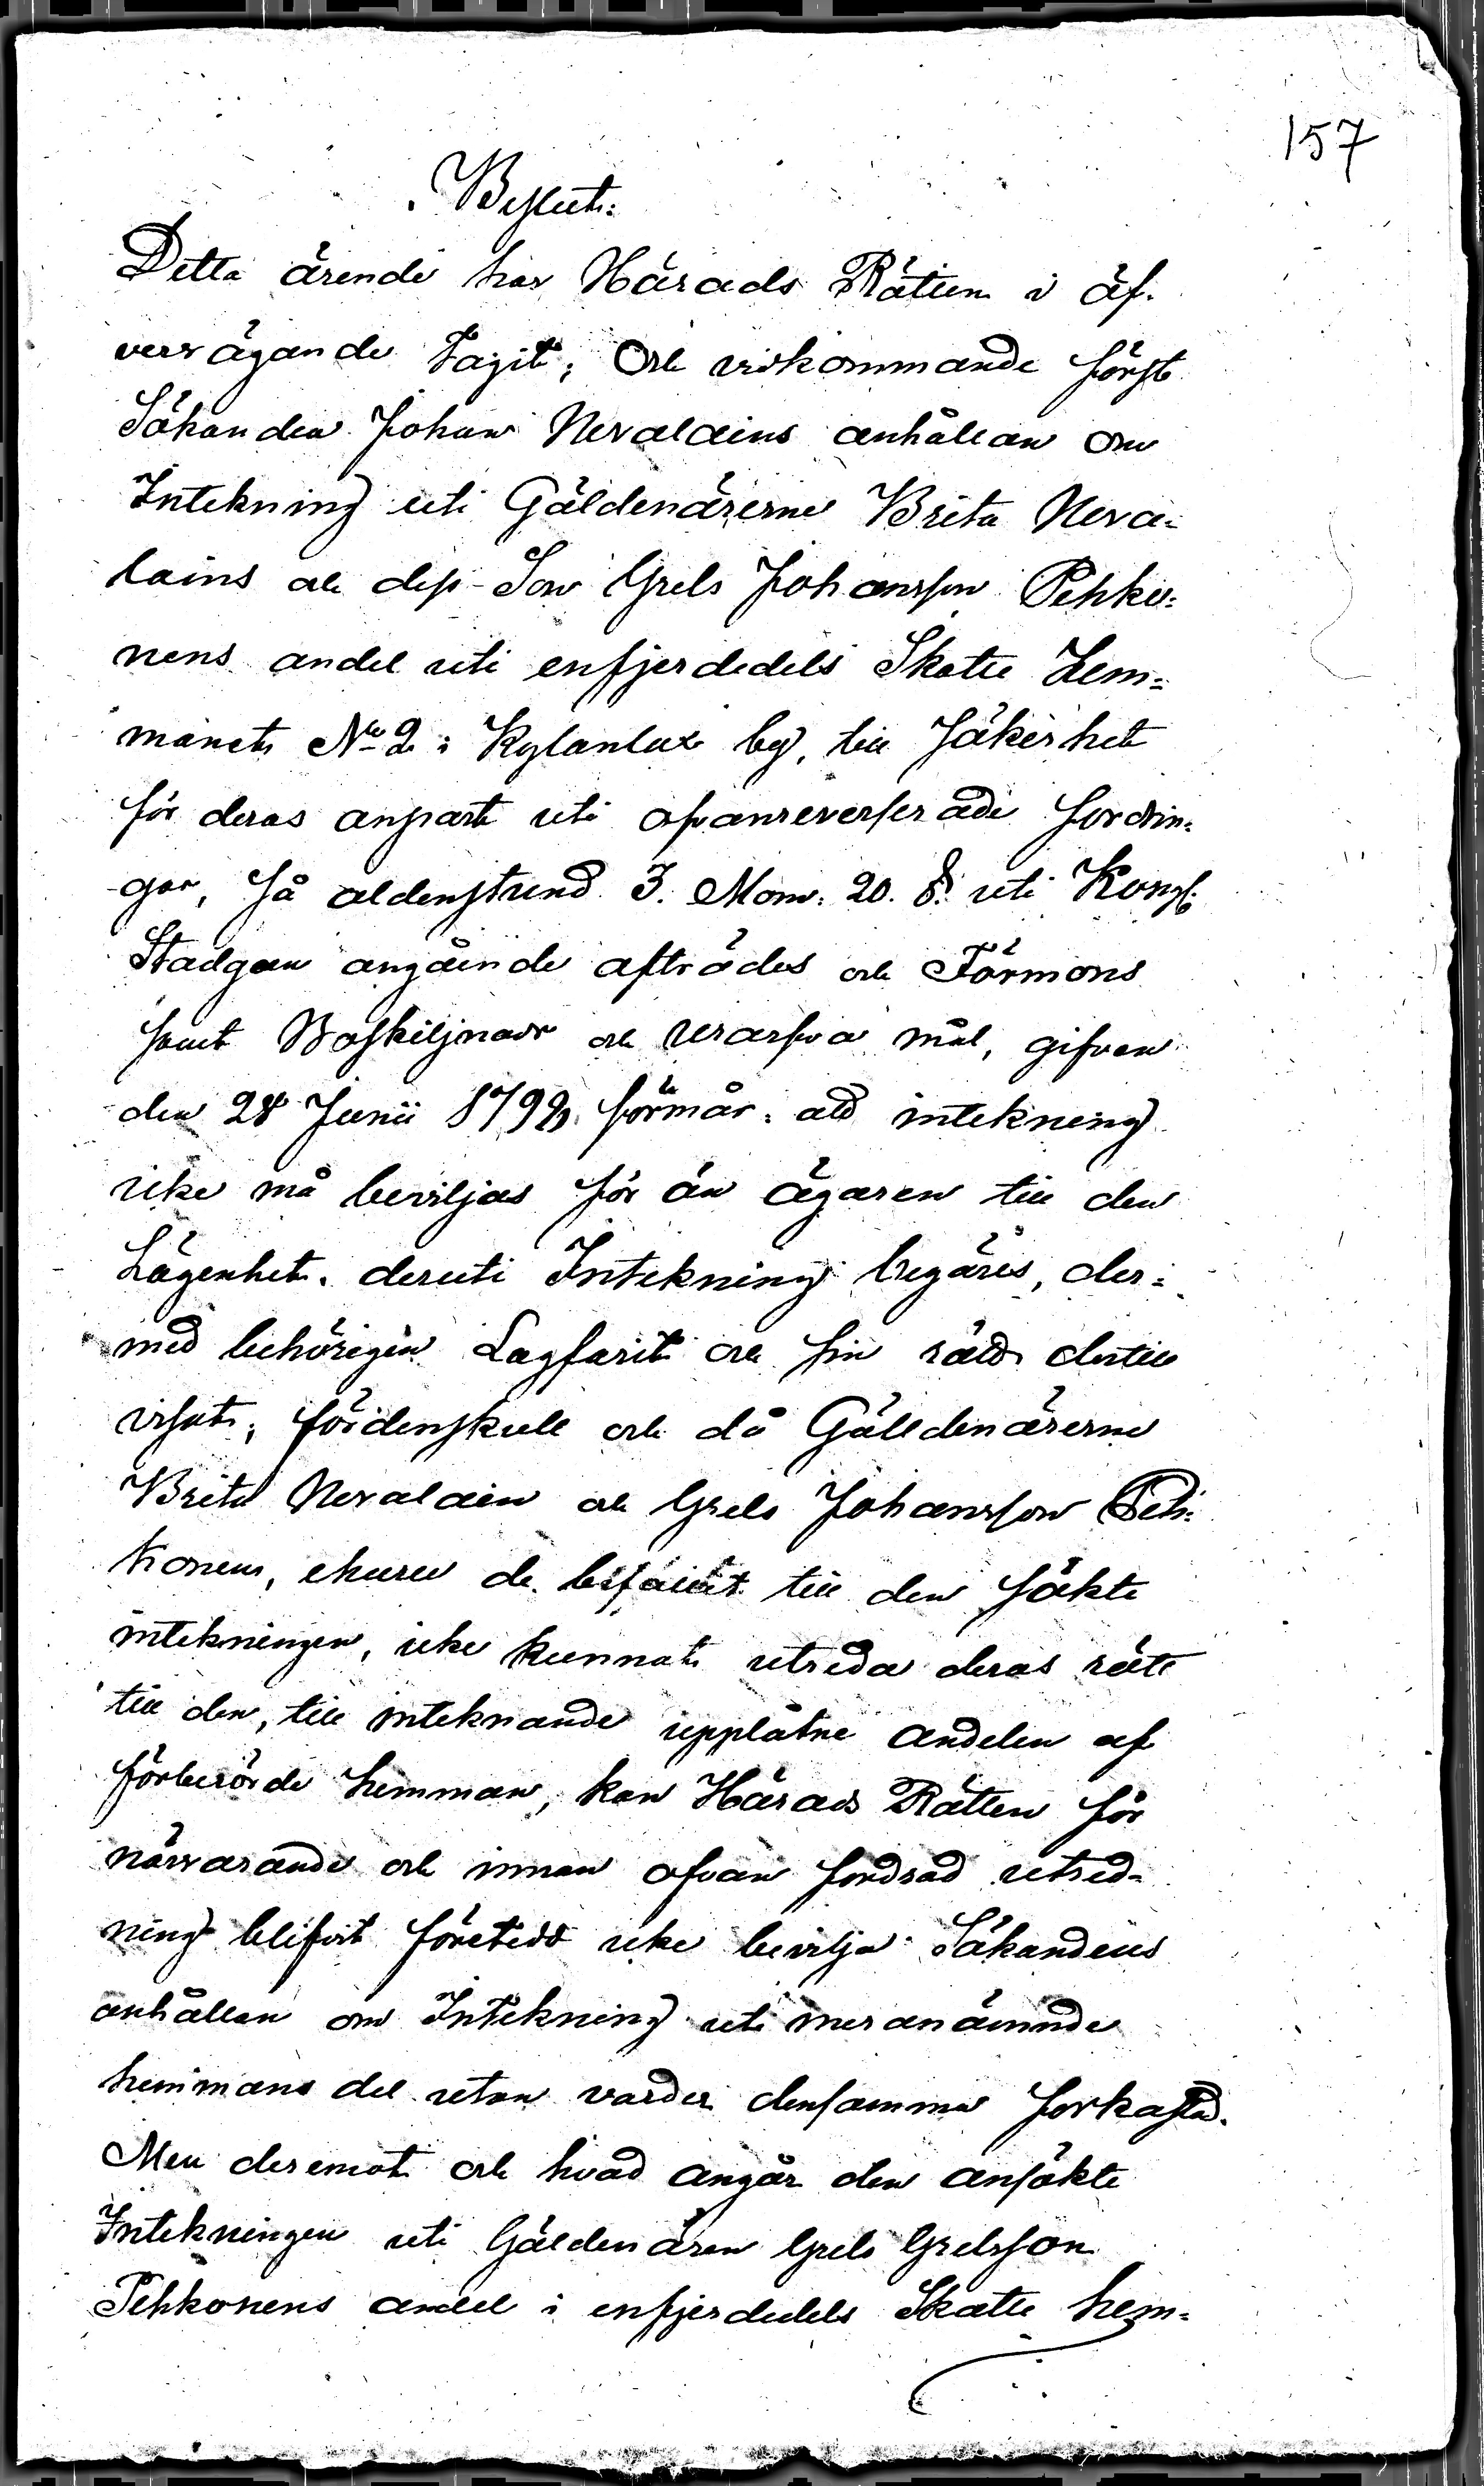 157
Beslut:
Detta ärende har Härads Rätten i öf-
vervägande tagit; Och vidkommande först
Sökanden Johan Nevalains anhållan om
Intekning uti Gäldenärerne Brita Neva=
lains och dess Son Grels Johansson Pehko=
nens andel uti enfjerdedels Skatte Hem=
manet No 2 i Kylanlax by, till säkerhet
för deras anpart uti ofvanreverserade fordrin=
gar, så aldenstund 3. Mom: 20. §. uti Kongl:
Stadgan angående afträdes och Förmons
samt Boskillnads och Urarfva mål, gifven
den 28 Junii 1798. förmår: att intekning
icke må beviljas för än ägaren till den
Lägenhet, deruti Intekning begäres, der=
med behörigen Lagfarit och sin rätt dertill
visat; fördenskull och då Gälldenärerne
Brita Nevalain och Grels Johansson Peh=
konen, ehuru de bifallit till den sökte
intekningen, icke kunnat utreda deras rätt
till den, till inteknande upplåtne andelen af
förberörde hemman, kan Härads Rätten för
närvarande och innan ofvan fordrad utred=
ning blifvit företedd icke bevilja Sökandens
anhållan om Intekning uti meranämnde
hemmans del utan varder densamma förkastad.
Men deremot och hvad angår den ansökte
Intekningen uti Gäldenären Grels Grelsson
Pehkonens andel i enfjerdedels Skatte hem=